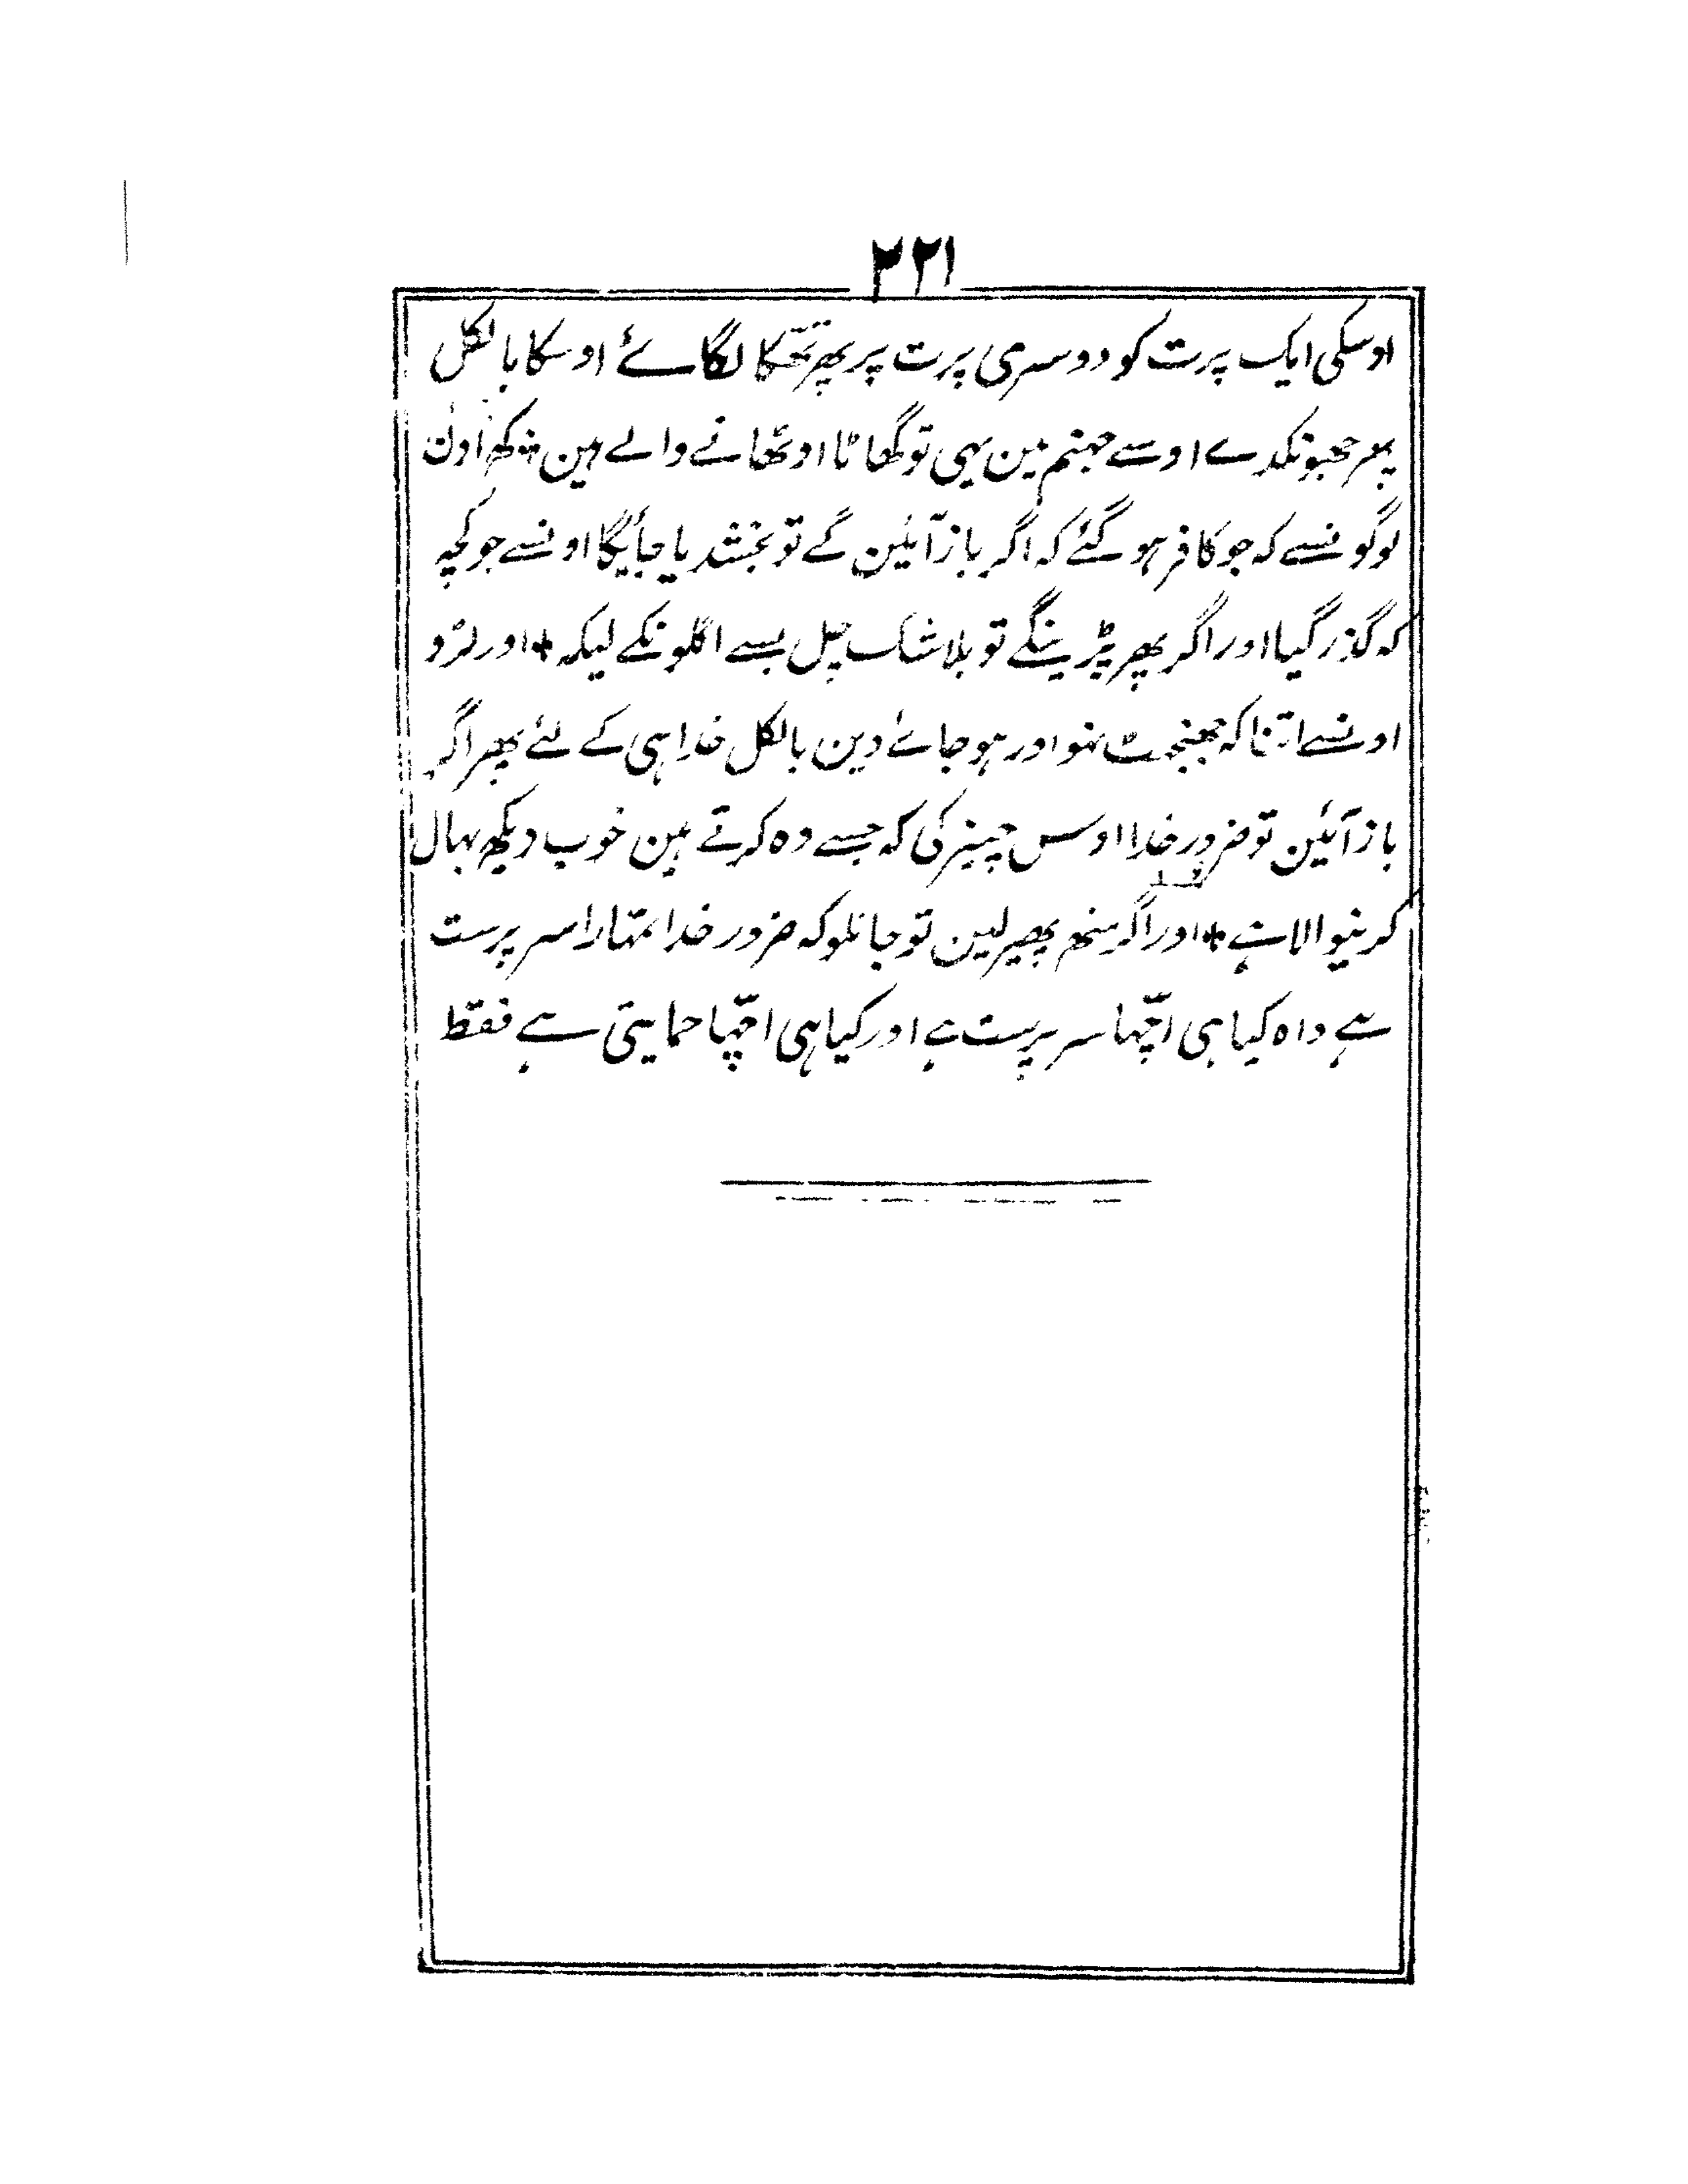 ۲۲۱
اوسکی ایک پرت کو دوسری پرت پر پھر تھکا لگائے اوسکا بالکل
پھر جھونکدے اوسے جہنم مین یہی تو گھاٹا اوٹھانے والے ہین کھ اون
لوگونسے کہ جو کافر ہو گئے کہ اگر باز آئین گے تو بخشدیا جائیگا اونسے جو کچہ
کہ گذر گیا اور اگر پھر پڑینگے تو بلا شک چل بسے اگلونکے لیکہ * اور لڑو
اونسے اتنا کہ جھنجٹ نہو اور ہو جائے دین بالکل خدا ہی کے لئے پھر اگر
باز آئین تو ضرور خدا اوس چیز کی کہ جسے وہ کرتے ہین خوب دیکھ بہال
کرنیوالا ہے * اور اگر منھ پھیر لین تو جانلو کہ ضرور خدا تمہارا سرپرست
ہے واہ کیا ہی اچّہا سرپرست ہے اور کیا ہی اچّہا حمایتی ہے فقط